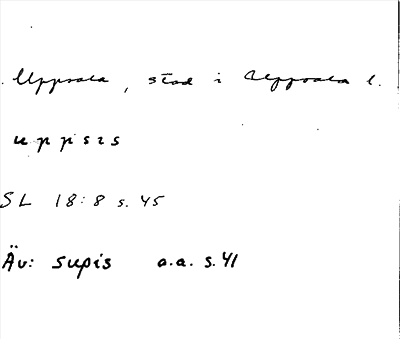 Uppsala, stad i Uppsala l.
uppsis
SL 18:8 s. 45
Äv: supis a.a. s. 41